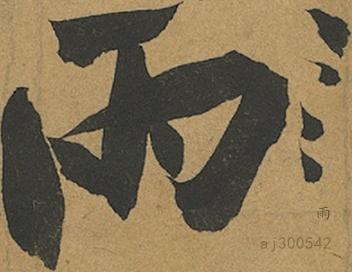 雨
雨
aj300542